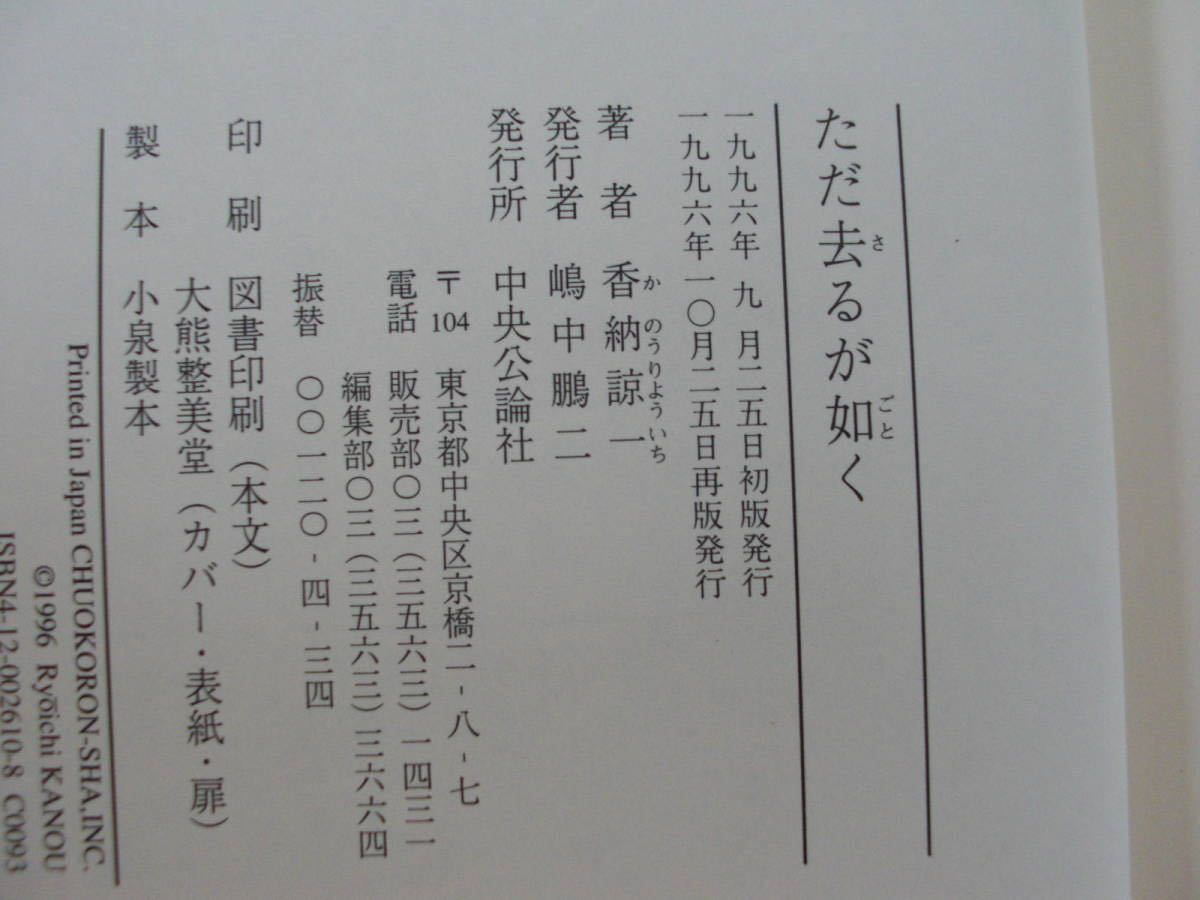 ただ去るが如く
さ
ごと
一九九六年 九 月二五日初版発行
一九九六年一〇月二五日再版発行
著者 香納諒一
か のうりよういち
発行者 嶋中鵬二
発行所 中央公論社
〒104 東京都中央区京橋二-八-七
電話 販売部〇三(三五六三)一四三一
編集部〇三(三五六三)三六六四
振替 〇〇一二〇-四-三四
印刷 図書印刷(本文)
大熊整美堂(カバー・表紙・扉)
製本 小泉製本
Printed in Japan CHUOKORON-SHA,INC.
©1996 Ryōichi KANOU
ISBN4-12-002610-8 C0093